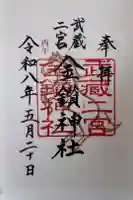 奉拝
武蔵二宮
武蔵
二宮
金鑚神社
令和八年五月二十日